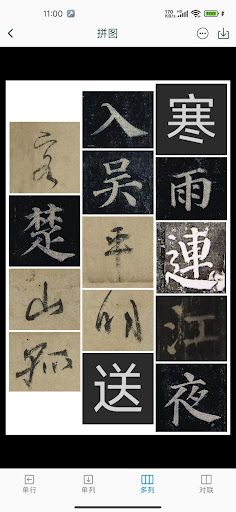 11:00
170 KB/s
拼图
寒雨連江夜
入吴平明送
客楚山孤
单行
单列
多列
对联